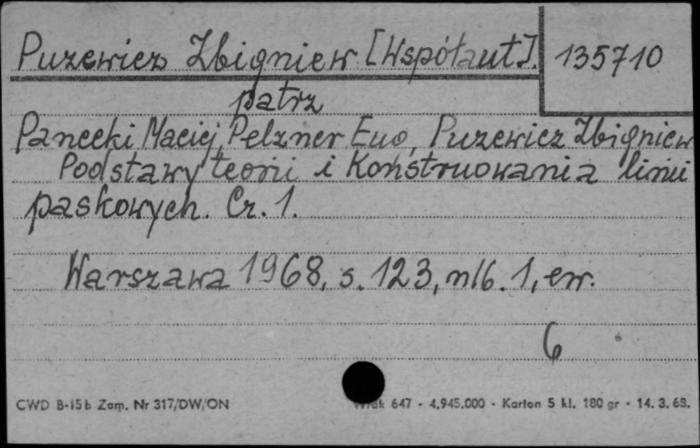 Puzewicz Zbigniew [Współaut]. 135710
patrz
Pancecki Maciej, Pelzner Ewa, Puzewicz Zbigniew
Podstawy teorii i konstruowania linii
paskowych. Cz. 1.
Warszawa 1968, s. 123, nlb. 1, err.
6
CWD B-15b Zam. Nr 317/DW/ON 647 - 4.945.000 - Karton 5 kl. 180 gr - 14. 3. 68.